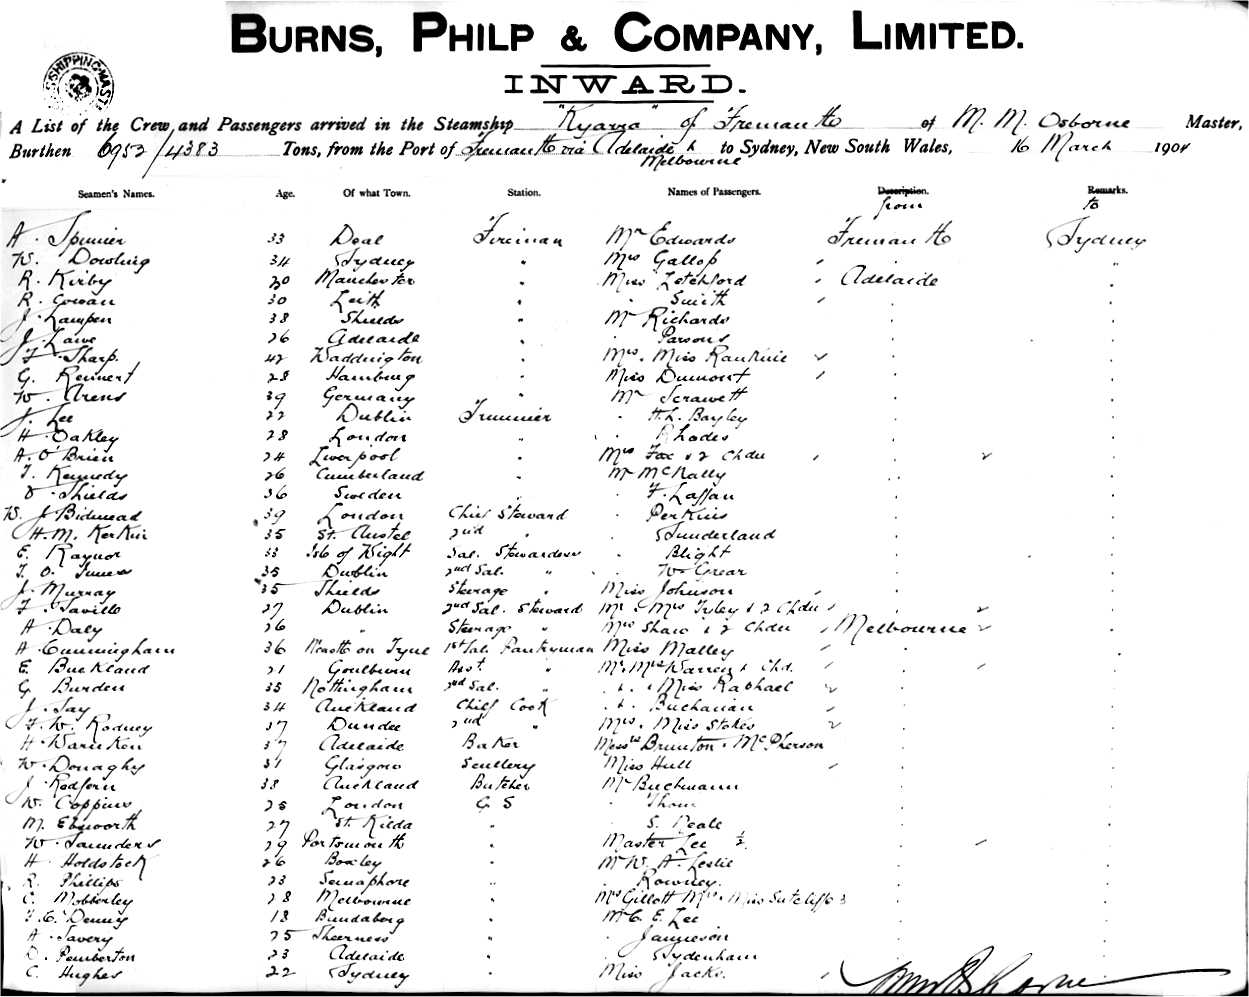 BURNS, PHILP & COMPANY, LIMITED.
INWARD.
SHIPPING MAST
A List of the Crew and Passengers arrived in the Steamship "Kyarra" of Fremantle of M. M. Osborne Master,
Burthen 6952/4383 Tons, from the Port of Fremantle via Adelaide & Melbourne to Sydney, New South Wales, 16 March 1904
Seamen's Names. Age. Of what Town. Station. Names of Passengers. Description. from Remarks. to
A. 33 Deal Fireman Mr Edwards Fremantle Sydney
W. Dowling 34 Sydney " Mrs Gallop
R. Kirby 30 Manchester " Miss Letchford Adelaide
R. Cowan 30 Leith " " Smith
J. Lampen 38 Shields " Mr Richards
J. Lawe 26 Adelaide " Parsons
F. Sharp. 42 Waddington " Mrs. Miss Rankine
G. Rennert 28 Hamburg " Miss Dumont
W. Arens 39 Germany " Mr
J. Lee 22 Dublin Trimmer H. L. Bayley
H. Oakley 28 London " Rhodes
A. O'Brien 24 Liverpool " Mrs Fox & 2 Chdn
T. Kennedy 26 Cumberland " Mr McNally
D. Shields 36 Sweden " F. Laffan
W. J. Bidmead 39 London Chief Steward Perkins
H. M. Kerkin 35 St. Austel 2nd " Sunderland
E. Raynor 33 Isle of Wight Sal. Stewardess Blight
T. O. 35 Dublin 2nd Sal. " W. Grear
J. Murray 35 Shields Steerage " Miss Johnson
F. Saville 27 Dublin 2nd Sal. Steward Mr & Mrs & 2 Chdn
A. Daly 26 " Steerage " Mrs Shaw & 2 Chdn Melbourne
A. Cunningham 36 Ncastle on Tyne 1st Sal. Pantryman Miss Malley
E. Buckland 21 Goulburn Asst. " Mr. Mrs Warren & Chd.
G. Burden 35 Nottingham 2nd Sal. " " " Miss Raphael
J. Jay 34 Auckland Chief Cook " Buchanan
F. W. Rodney 37 Dundee 2nd " Mrs. Miss Stokes
H. Warnken 37 Adelaide Baker Messrs Brunton & McPherson
W. Donaghy 31 Glasgow Scullery Miss Hull
J. Redfern 38 Auckland Butcher Mr Buchmann
W. Coppins 25 London G S Thom
M. Ebsworth 27 St. Kilda " S. Neale
W. Saunders 29 Portsmouth " Master Lee ½
H. Holdstock 26 Boxley " Mr W. A. Leslie
R. Phillips 23 Semaphore " Rowney.
C. Mobberley 28 Melbourne " Mrs Gillott Mrs & Miss Sutcliffe 3
T. C. Denny 18 Bundaberg Mr C. E. Lee
A. Savery 25 Sheerness " Jamieson
D. Pemberton 23 Adelaide " Sydenham
C. Hughes 22 Sydney " Miss Jacks.